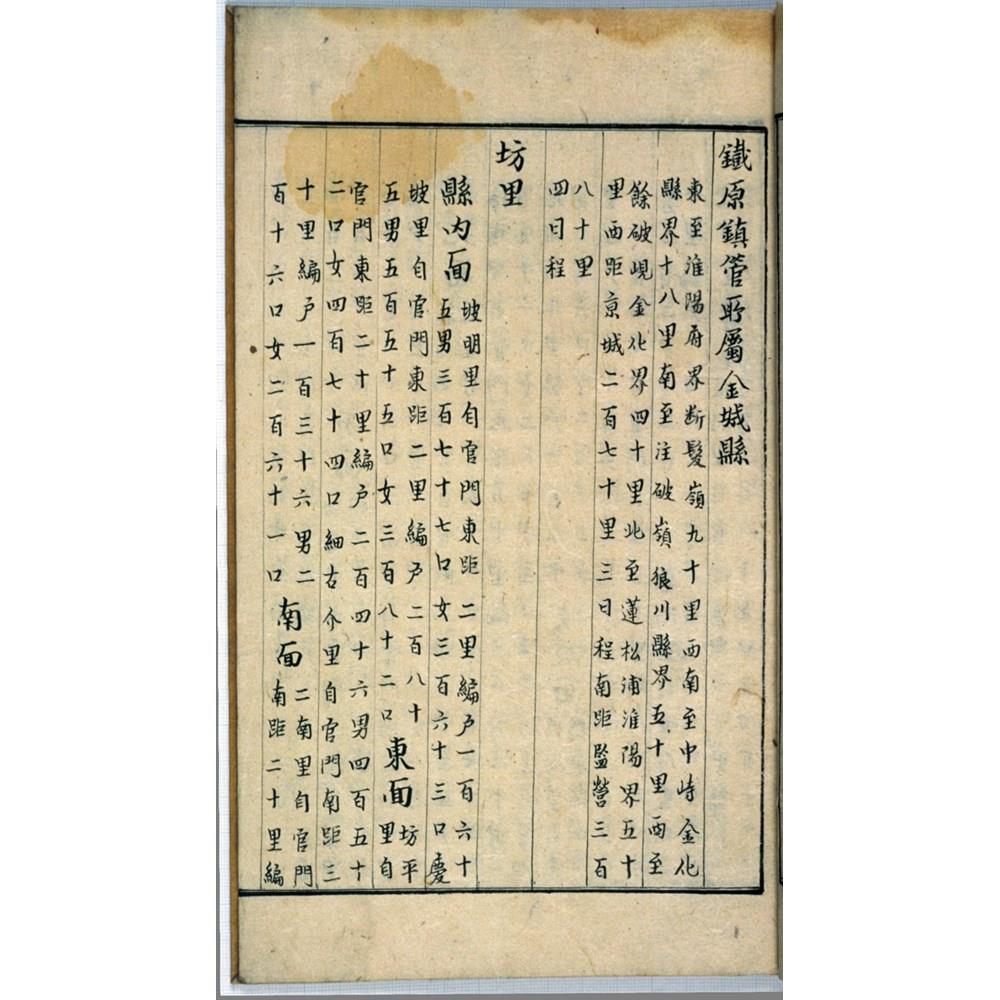 鐵原鎮管所屬金城縣
東至淮陽府界断髮嶺九十里西南至中峙金化
縣界十八里南至注破嶺狼川縣界五十里西至
餘破峴金化界四十里北至蓮松浦淮陽界五十
里西距京城二百七十里三日程南距監營三百
八十里
四日程
坊里
縣内面
坡明里自官門東距二里編戶一百六十
五男三百七十七口女三百六十三口慶
坡里自官門東距二里編戶二百八十
五男五百五十五口女三百八十二口
東面
坊平
里自
官門東距二十里編戶二百四十六男四百五十
二口女四百七十四口細古介里自官門南距三
十里編戶一百三十六男二
百十六口女二百六十一口
南面
二南里自官門
南距二十里編